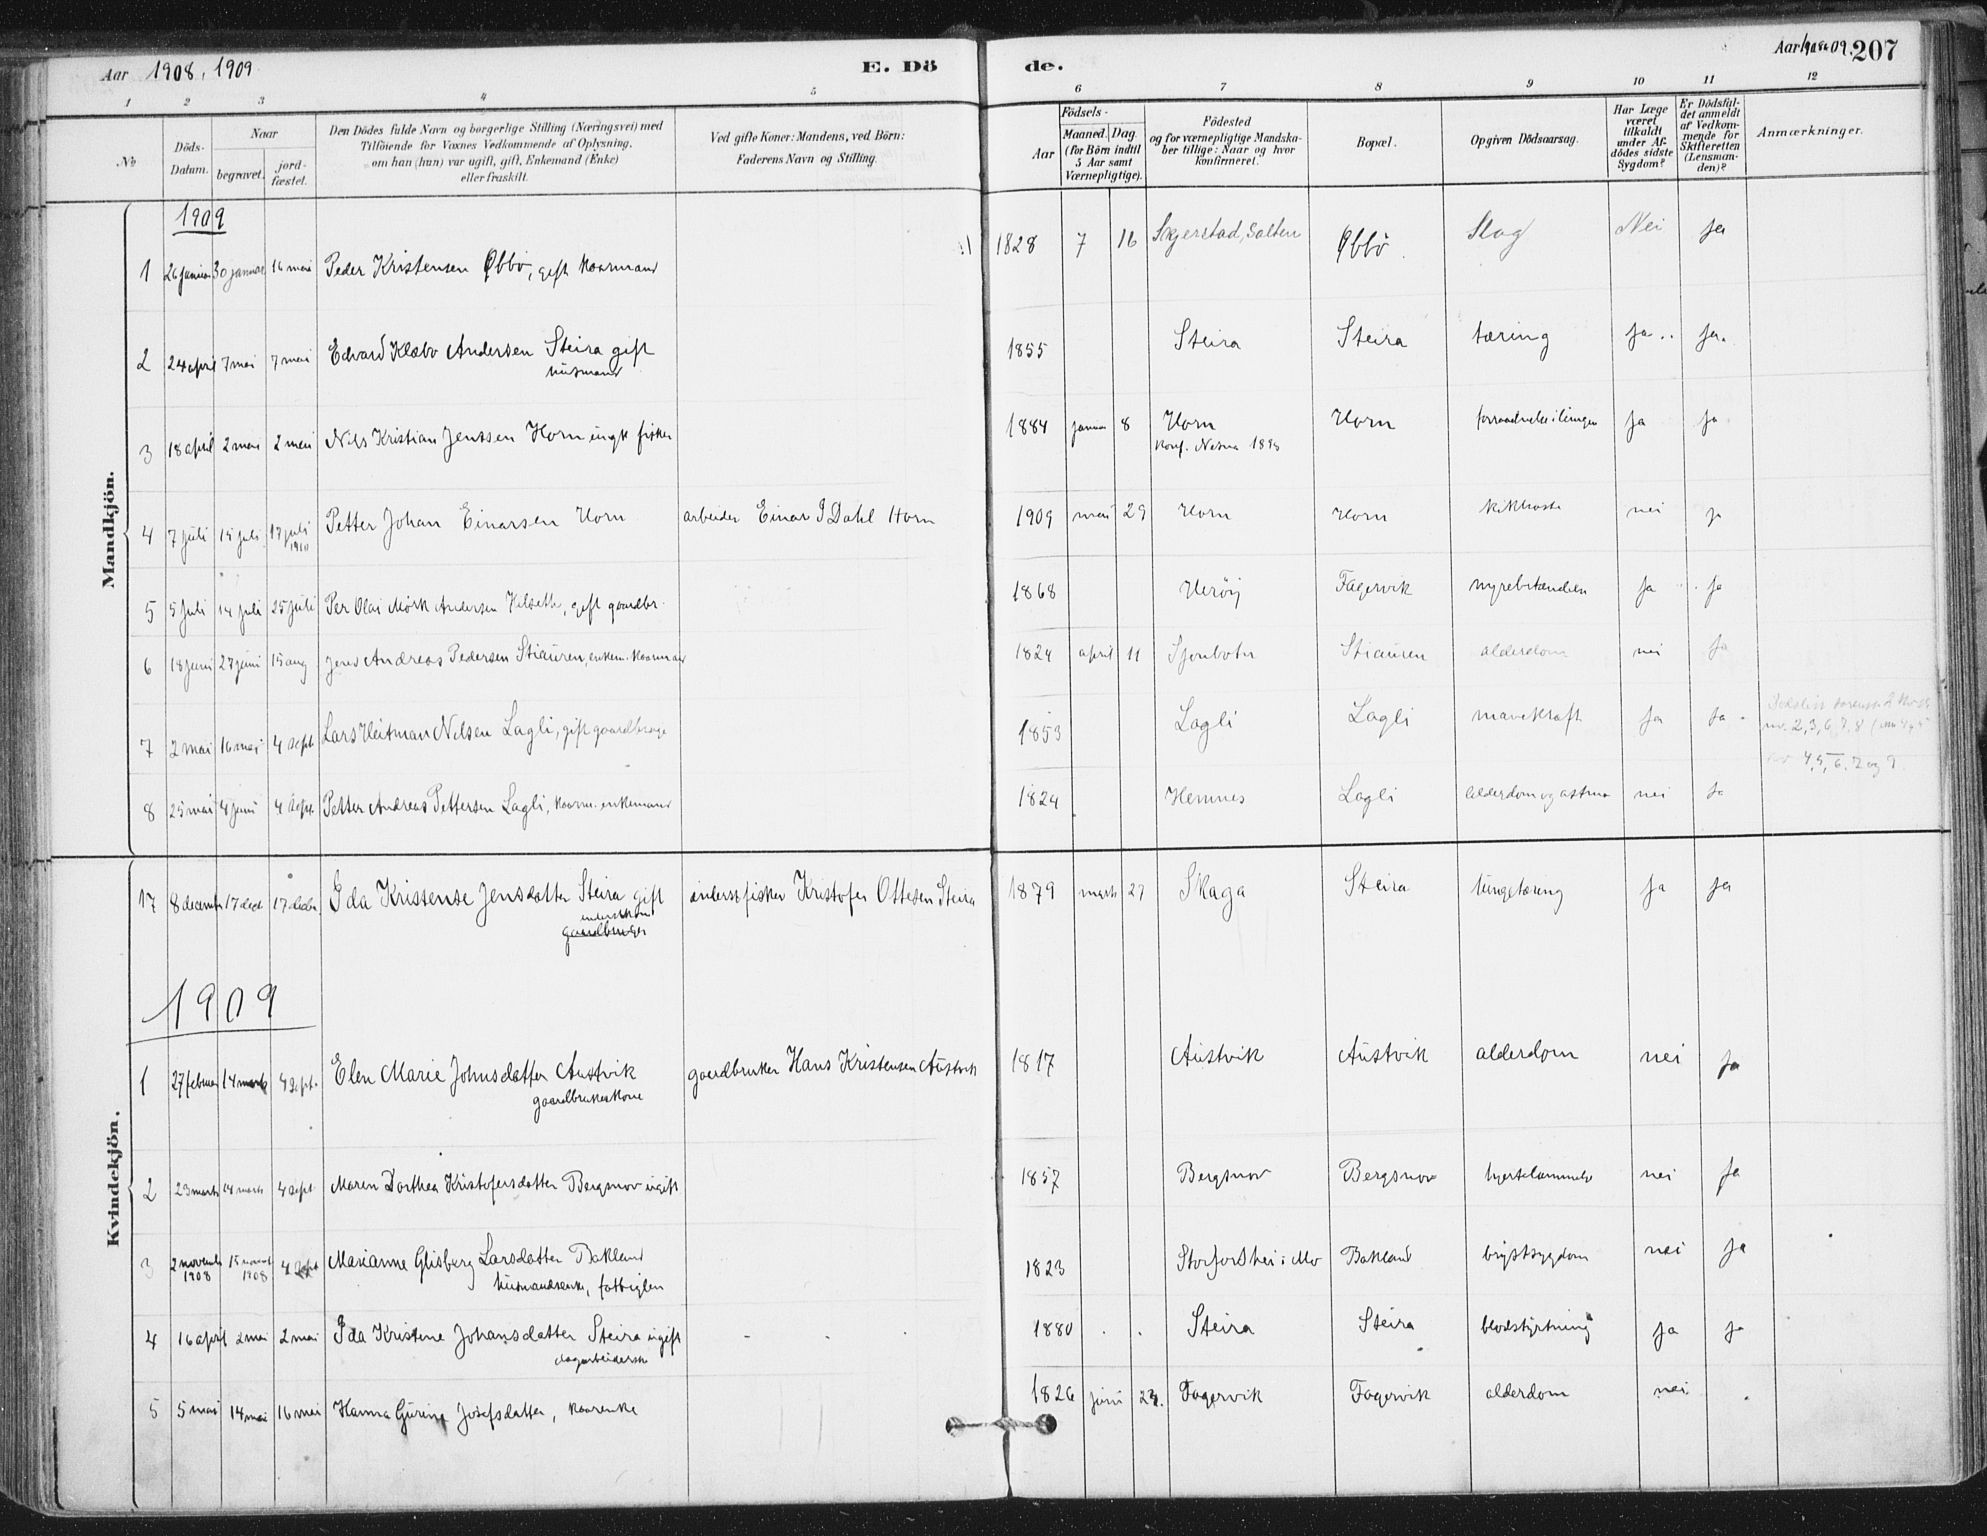 Aar 1908, 1909
E. Dö
de.
Aar 1908-09. 207
1 2 3 4 5 6 7 8 9 10 11 12
No
Döds-Datum.
Naar
begravet.
jord-fæstet.
Den Dödes fulde Navn og borgerlige Stilling (Næringsvei) med
Tilföiende for Voxnes Vedkommende af Oplysning,
om han (hun) var ugift, gift, Enkemand (Enke)
eller fraskilt.
Ved gifte Koner: Mandens, ved Börn:
Faderens Navn og Stilling.
Födsels-
Aar
Maaned. Dag.
(for Börn indtil
5 Aar samt
Værnepligtige).
Födested
og for værnepligtige Mandska-
ber tillige: Naar og hvor
konfirmeret.
Bopæl.
Opgiven Dödsaarsag.
Har Læge
været
tilkaldt
under Af-
dödes sidste
Sygdom?
Er Dödsfal-
det anmeldt
af Vedkom-
mende for
Skifteretten
(Lensman-
den)?
Anmærkninger.
Mandkjön.
1909
1 26 januar 30 januar 16 mai Peder Kristensen Øbbö, gift kaarmand 1828 7 16 Skjerstad, Salten Øbbö. Slag Nei ja
2 24 april 7 mai 7 mai Edvard Klæbo Andersen Steira gift 1855 Steira Steira tæring ja ja.
husmand
3 18 april 2 mai 2 mai Nils Kristian Jenssen Horn ingk fisker 1884 januar 8 Horn Horn ja ja
konf. Nesna
4 7 juli 15 juli 17 juli Petter Johan Einarsen Horn arbeider Einar J Dahl Horn 1909 mai 29 Horn Horn kikhoste nei ja
1910
5 5 juli 14 juli 25 juli Per Olai Mörk Andersen gift gaardbr. 1868 Herøy Fagervik ja ja
6 18 juni 27 juni 15 aug Jens Andreas Pedersen Stiauren, enkem. kaarmand 1824 april 11 Sjonbotn Stiauren alderdom nei ja
7 2 mai 16 mai 4 sept Lars Heitman Nilsen Lagli, gift gaardbruger 1853 Lagli Lagli mavekræft ja ja
nr. 2, 3, 6, 7, 8
4, 5, 6, 7 og 9.
8 25 mai 4 juni 4 sept. Petter Andreas Pettersen Lagli, kaarm. enkemand 1824 Hemnes Lagli alderdom og astma nei ja
Kvindekjön.
17 8 december 17 dec 17 decbr. Ida Kristense Jensdatter Steira gift inderstfisker Kristofer Ottesen Steira 1879 marts 27 Skaga Steira lungetæring ja ja
inderstkone
gaardbruger
1909
1 27 februar 14 marts 4 sept. Elen Marie Johnsdatter Austvik gaardbruker Hans Kristensen Austvik 1817 Austvik Austvik alderdom nei ja
gaardbrukerkone
2 23 marts 14 marts 4 sept Maren Dorthea Kristofersdatter Bergsnov ugift 1857 Bergsnov Bergsnov hjertelammelse nei ja
3 2 novemb 15 novemb 4 Sept Marianne Glisberg Larsdatter Bakland 1823 Storfordhei i Mo Bakland brystsygdom nei ja
1908 1908 husmandsenke, fattiglem
4 16 april 2 mai 2 mai Ida Kristine Johansdatter Steira ugift 1880 Steira Steira blodstyrtning ja ja
dagarbeiderske
5 5 mai 14 mai 16 mai Hanna Gurine Josefsdatter, kaarenke 1826 juni 23. Fagervik Fagervik alderdom nei.